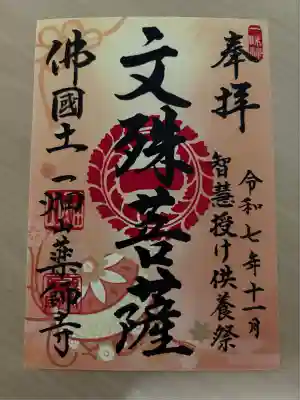 奉拝
令和七年十一月
智慧授け供養祭
文殊菩薩
佛國土一畑山薬師寺